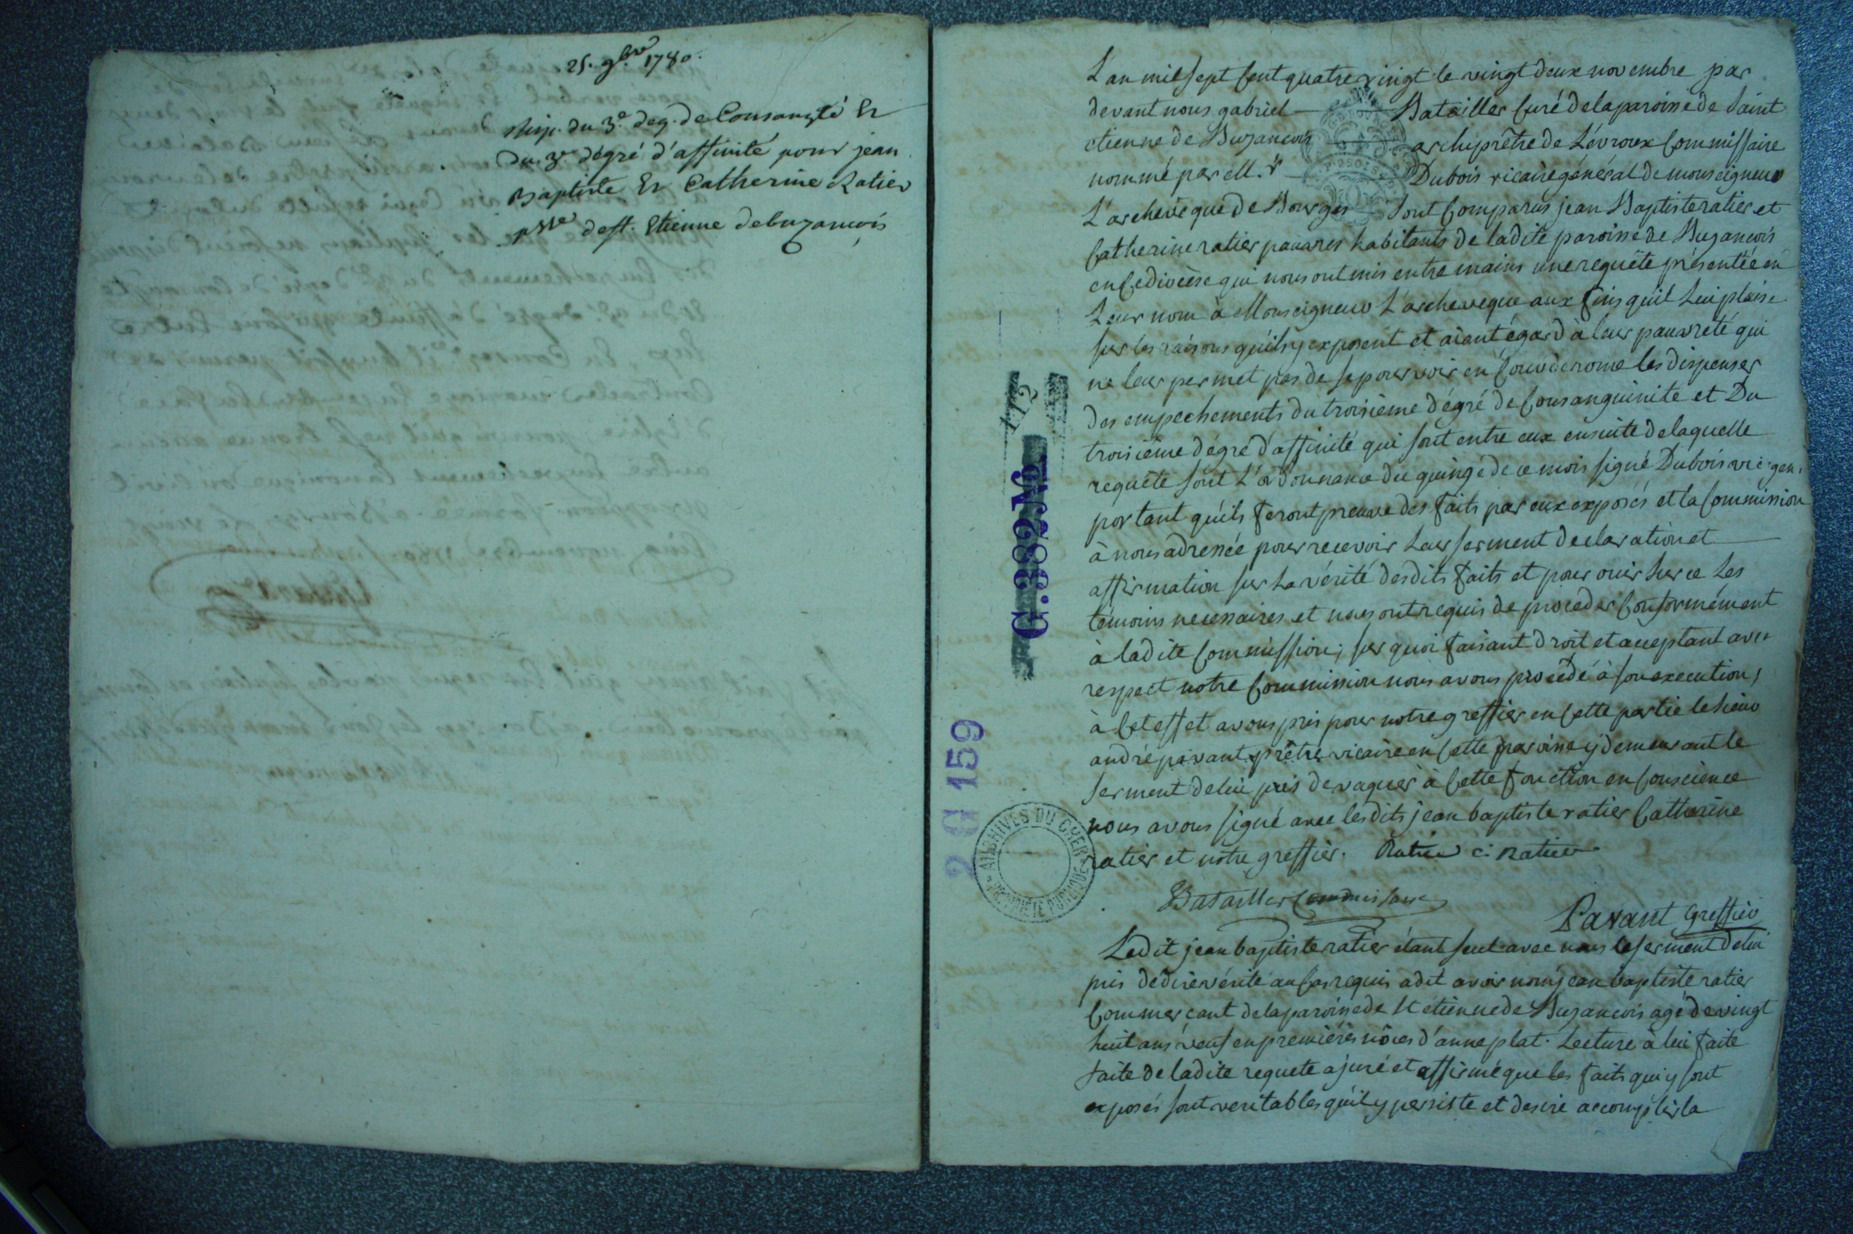 25. 9bre 1780.
disp. du 3e. deg. de Consangté Et
du 3e dégré d'affinité pour jean
Baptiste Et Catherine Ratier
psse de St. Etienne de buzançois
L'an mil sept Cent quatre vingt le vingt deux novembre par
devant nous gabriel Batailler Curé de la paroisse de Saint
etienne de Buzancois archiprêtre de Lévroux Commissaire
nommé par M. Dubois vicaire général de monseigneur
L'archevêque de Bourges Sont Comparus jean Baptiste ratier et
Catherine ratier pauvres habitants de ladite paroisse de Buzancois
en Ce diocese qui nous ont mis entre mains une requête présentée en
Leur nom à Monseigneur L'archeveque aux fins quil Lui plaise
sur les raisons quils y exposent et aiant égard à leur pauvreté qui
ne leur permet pas de se pourvoir en Cour de rome les dispenser
des empechements du troisieme dégré de Consanguinité et Du
troisième dégré d'affinité qui sont entre eux ensuite de laquelle
requête sont L'ordonnance du quinze de ce mois signé Dubois vic. gen.
portant quils feront preuve des faits par eux exposés et la Commission
à nous adressée pour recevoir Leur serment declaration et
affirmation sur la vérité desdits faits et pour ouir sur ce Les
témoins necessaires et nous ont requis de proceder Conformement
à ladite Commission; sur quoi faisant droit et acceptant avec
respect notre Commission nous avons procédé à son execution,
à Cet effet avons pris pour notre greffier en Cette partie le Sieur
andré pavant prêtre vicaire en Cette paroisse y demeurant le
serment de lui pris de vaquer à Cette fonction en Conscience
nous avons signé avec lesdits jean baptiste ratier Catherine
ratier et notre greffier. Ratier C. Ratier
Batailler Commissaire
Pavant Greffier
Ledit jean baptiste ratier étant seul avec nous le serment de lui
pris de dire vérité au Cas requis a dit avoir nom jean baptiste ratier
Commercant de la paroisse de St etienne de Buzancois agé de vingt
huit ans veuf en premières nôces d'anne plat. Lecture à lui faite
faite de ladite requete a juré et affirmé que les faits qui y sont
exposés sont veritables quil y persiste et desire accomplir la
112
G. 382 No
2 G 159
ARCHIVES DU CHER
PROPRIÉTÉ PUBLIQUE